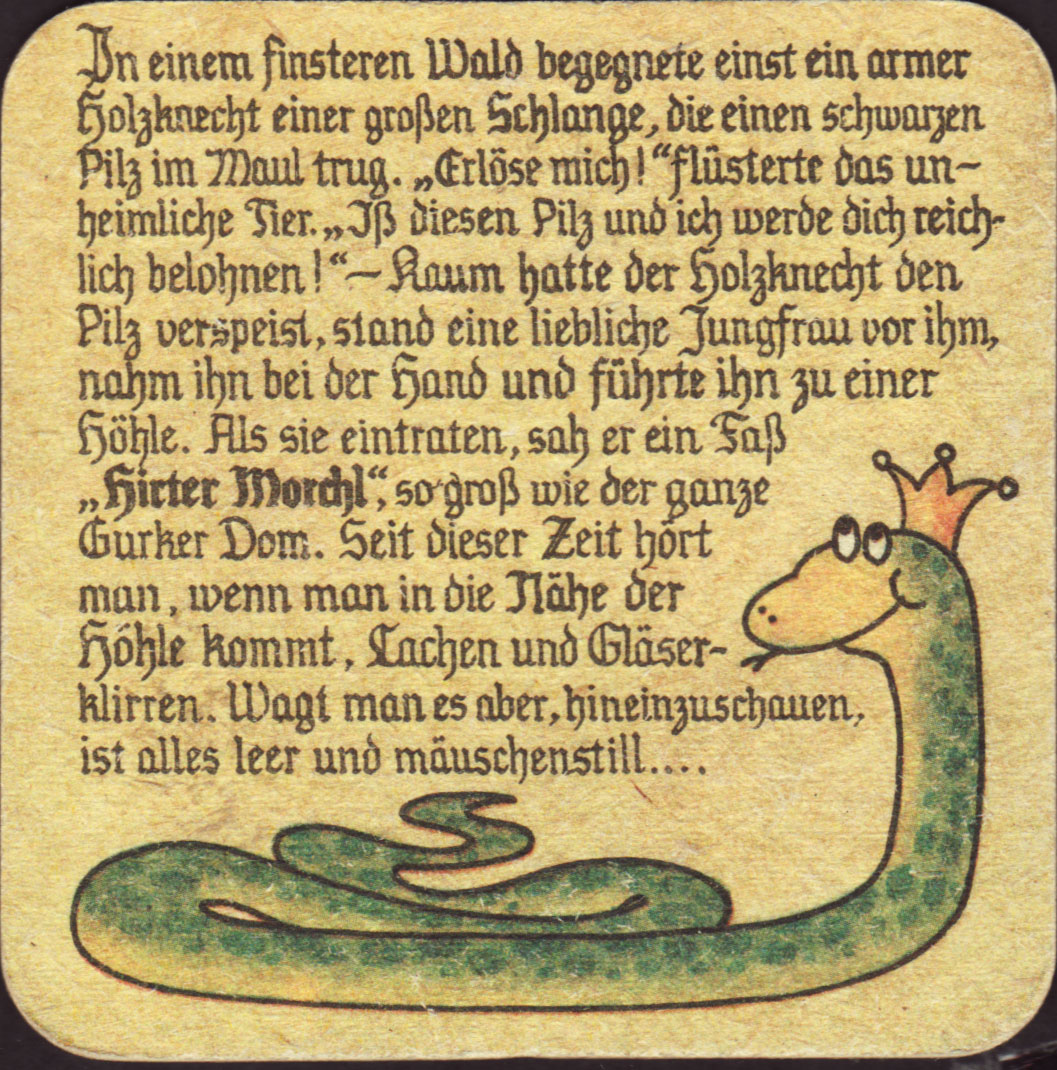 In einem finsteren Wald begegnete einst ein armer
Holzknecht einer großen Schlange, die einen schwarzen
Pilz im Maul trug. „Erlöse mich!“ flüsterte das un-
heimliche Tier. „Iß diesen Pilz und ich werde dich reich-
lich belohnen!“ – Kaum hatte der Holzknecht den
Pilz verspeist, stand eine liebliche Jungfrau vor ihm,
nahm ihn bei der Hand und führte ihn zu einer
Höhle. Als sie eintraten, sah er ein Faß
„Hirter Morchl“, so groß wie der ganze
Gurker Dom. Seit dieser Zeit hört
man, wenn man in die Nähe der
Höhle kommt, Lachen und Gläser-
klirren. Wagt man es aber, hineinzuschauen,
ist alles leer und mäuschenstill....